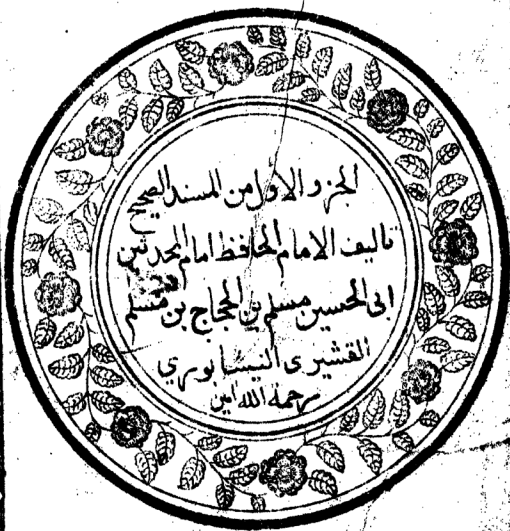 الجزء الاول من المسند الصحيح
تاليف الامام الحافظ امام المحدثين
ابى الحسين مسلم بن الحجاج بن مسلم
القشيرى النيسابورى
رحمة الله امين